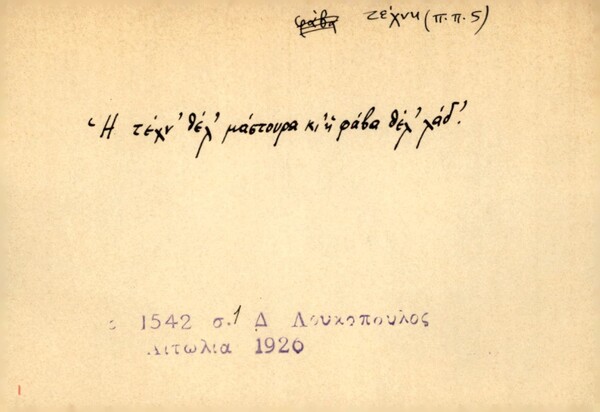 φάβα τέχνη (π.π. 5)
Ἡ τέχν' θέλ' μάστουρα κι' ἡ φάβα θέλ' λάδ'.
1542 σ.1 Δ Λουκοπουλος
Αιτωλια 1926